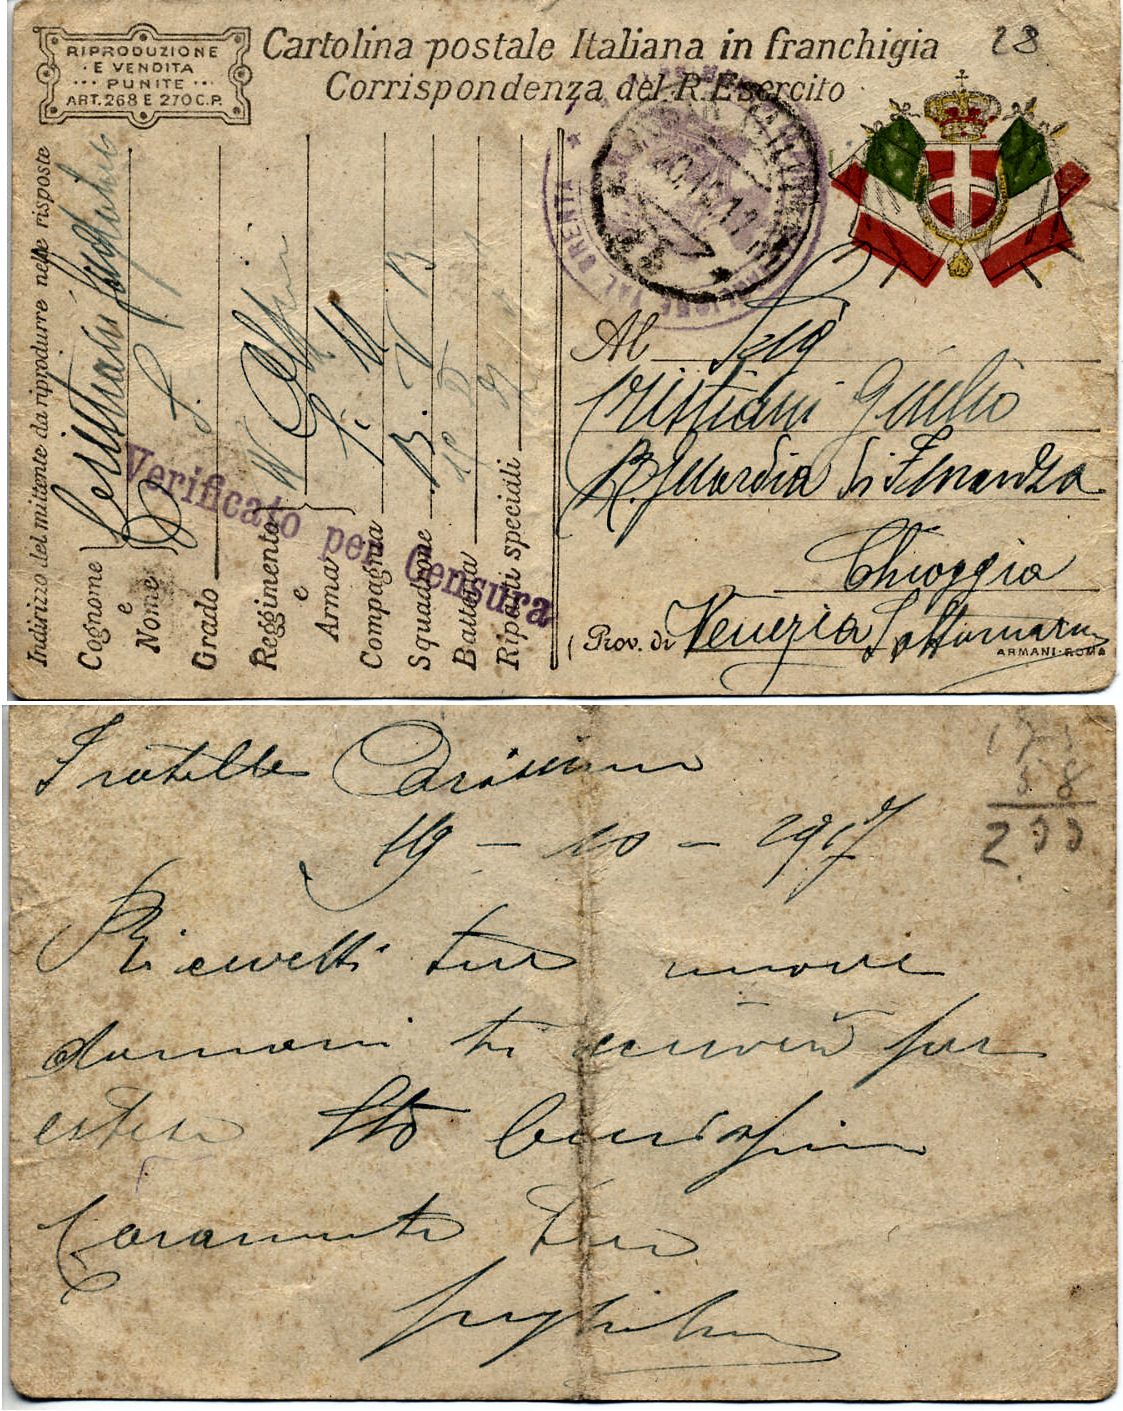 RIPRODUZIONE
E VENDITA
PUNITE
ART. 268 E 270 C.P.
Cartolina postale Italiana in franchigia
Corrispondenza del R. Esercito
28
Indirizzo del mittente da riprodurre nelle risposte
Cognome e Nome
Grado
Reggimento e Arma
Compagnia
Squadrone
Batteria
Riparti speciali
Verificato per Censura
VAL BRENTA
Al Sig
Cristiani Giulio
R. Guardia di Finanza
Chioggia
(Prov. di Venezia Sottomarina
ARMANI-ROMA
Fratello Carissimo
19 - 10 - 1917
Ricevetti tue nuove
domani ti scriverò per
esteso Sto benissimo
Caramente tuo